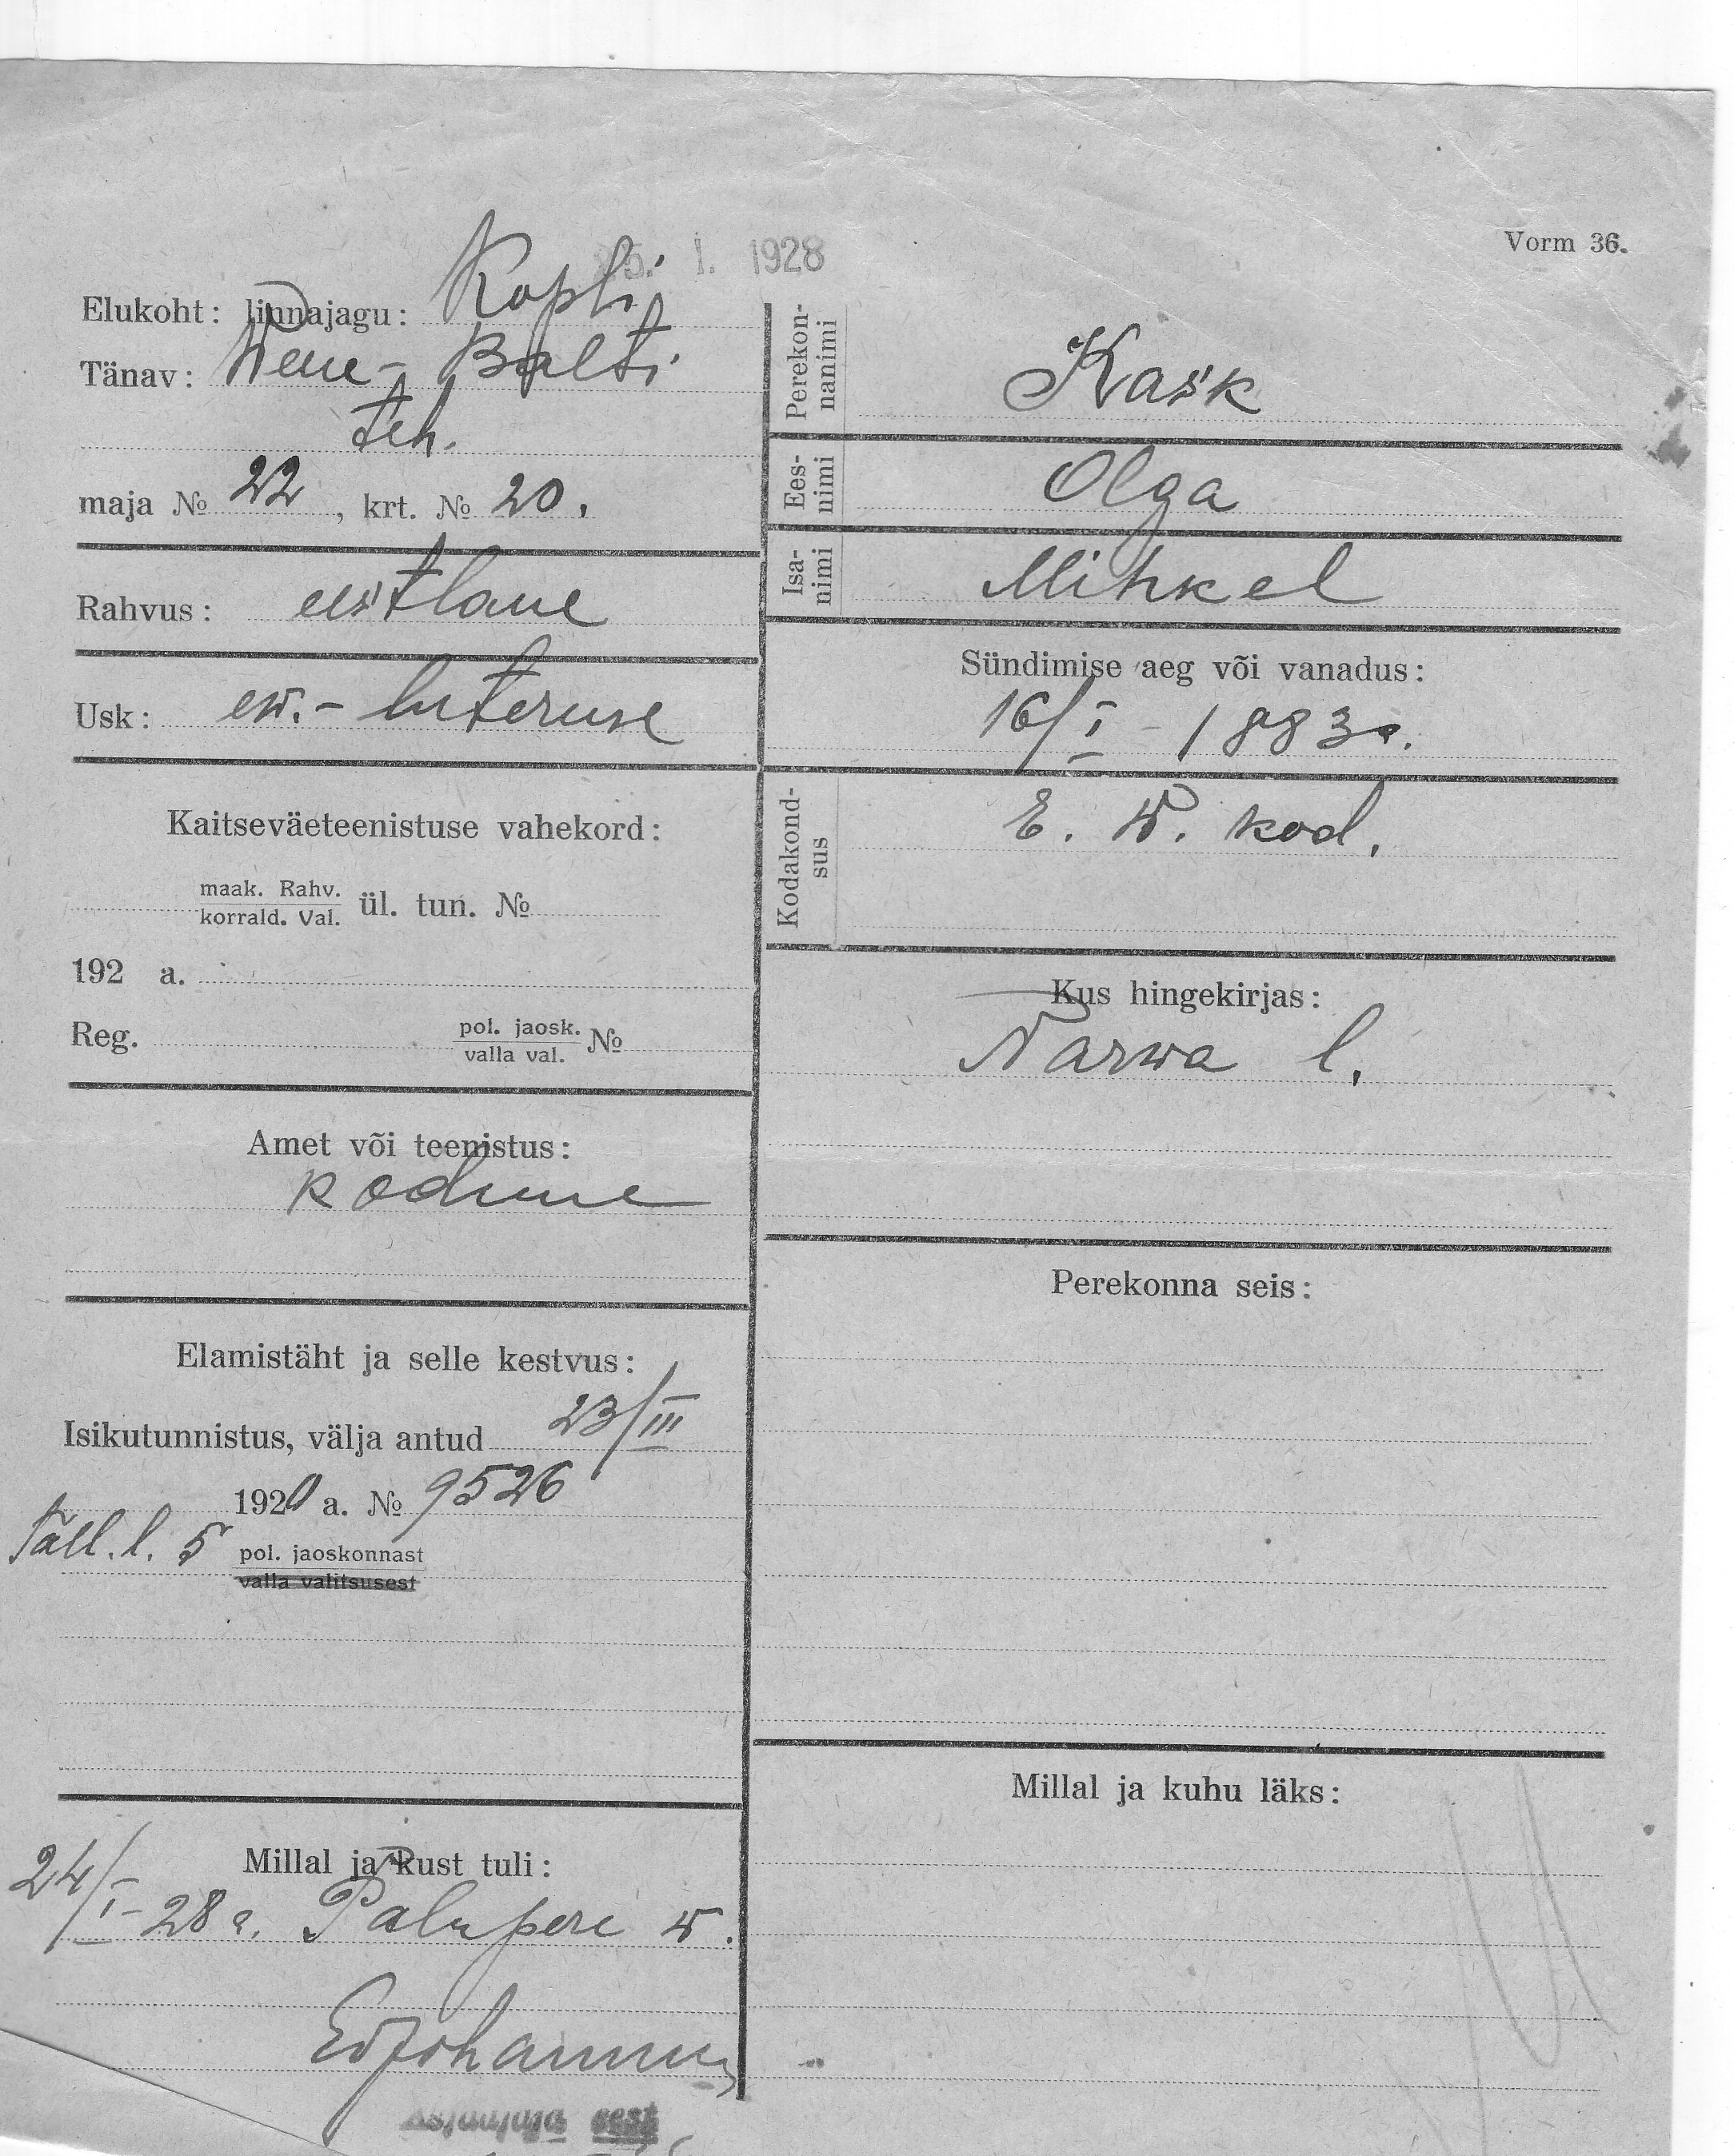 Vorm 36.
5. I. 1928
Elukoht: linnajagu: Kopli
Tänav: Wene-Balti
teh.
maja № 22, krt. № 20.
Rahvus: eestlane
Usk: ew.-luteruse
Kaitseväeteenistuse vahekord:
maak. Rahv.
korrald. Val. ül. tun. №
192 a.
Reg. pol. jaosk. №
valla val.
Amet või teenistus:
kodune
Elamistäht ja selle kestvus:
Isikutunnistus, välja antud 23/III
1920 a. № 9526
Tall. l. 5 pol. jaoskonnast
valla valitsusest
Millal ja kust tuli:
24/I-28 a. Palupere w.
Perekonnanimi Kask
Eesnimi Olga
Isanimi Mihkel
Sündimise aeg või vanadus:
16/I-1883 a.
Kodakondsus E. W. kod.
Kus hingekirjas:
Narwa l.
Perekonna seis:
Millal ja kuhu läks: